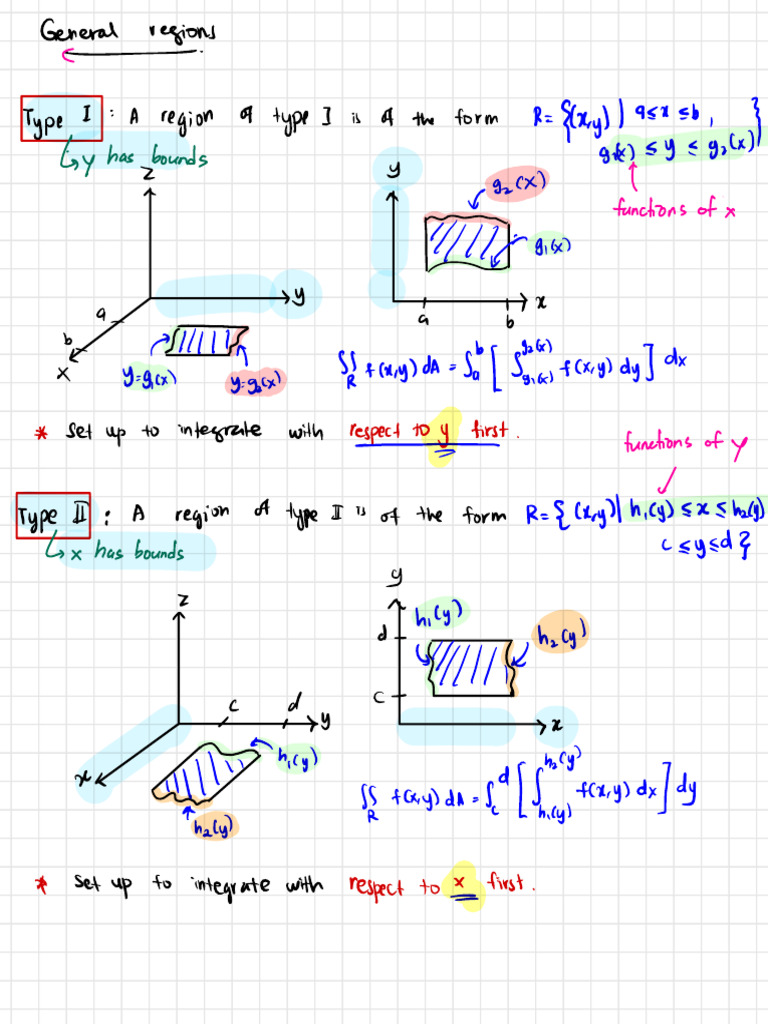 General regions
Type I : A region of type I is of the form R = {(x,y) | a ≤ x ≤ b,
g₁(x) ≤ y ≤ g₂(x)}
↳ y has bounds
functions of x
z
y
x
a
b
y = g₁(x)
y = g₂(x)
y
g₂(x)
g₁(x)
a
b
x
∬_R f(x,y) dA = ∫_a^b [ ∫_{g₁(x)}^{g₂(x)} f(x,y) dy ] dx
* Set up to integrate with respect to y first.
functions of y
Type II : A region of type II is of the form R = { (x,y) | h₁(y) ≤ x ≤ h₂(y)
c ≤ y ≤ d }
↳ x has bounds
z
c
d
y
x
h₁(y)
h₂(y)
y
h₁(y)
d
h₂(y)
c
x
∬_R f(x,y) dA = ∫_c^d [ ∫_{h₁(y)}^{h₂(y)} f(x,y) dx ] dy
* Set up to integrate with respect to x first.